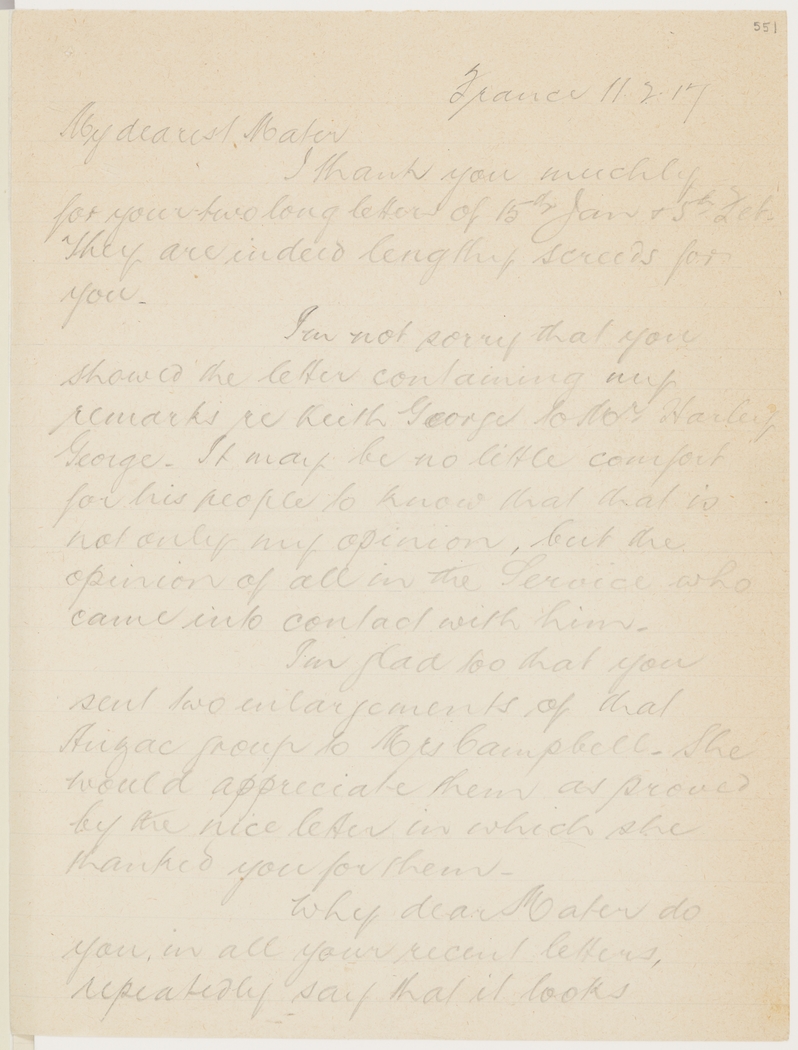 551
France 11.2.17
My dearest Mater
I thank you muchly
for your two long letters of 15th Jan & 5th Feb.
They are indeed lengthy screeds for
you -
I'm not sorry that you
showed the letter containing my
remarks re Keith George to Mrs Harley
George - It may be no little comfort
for his people to know that that is
not only my opinion, but the
opinion of all in the Service who
came into contact with him -
I'm glad too that you
sent two enlargements of that
Anzac group to Mrs Campbell - She
would appreciate them as proved
by the nice letter in which she
thanked you for them -
Why dear Mater do
you, in all your recent letters,
repeatedly say that it looks